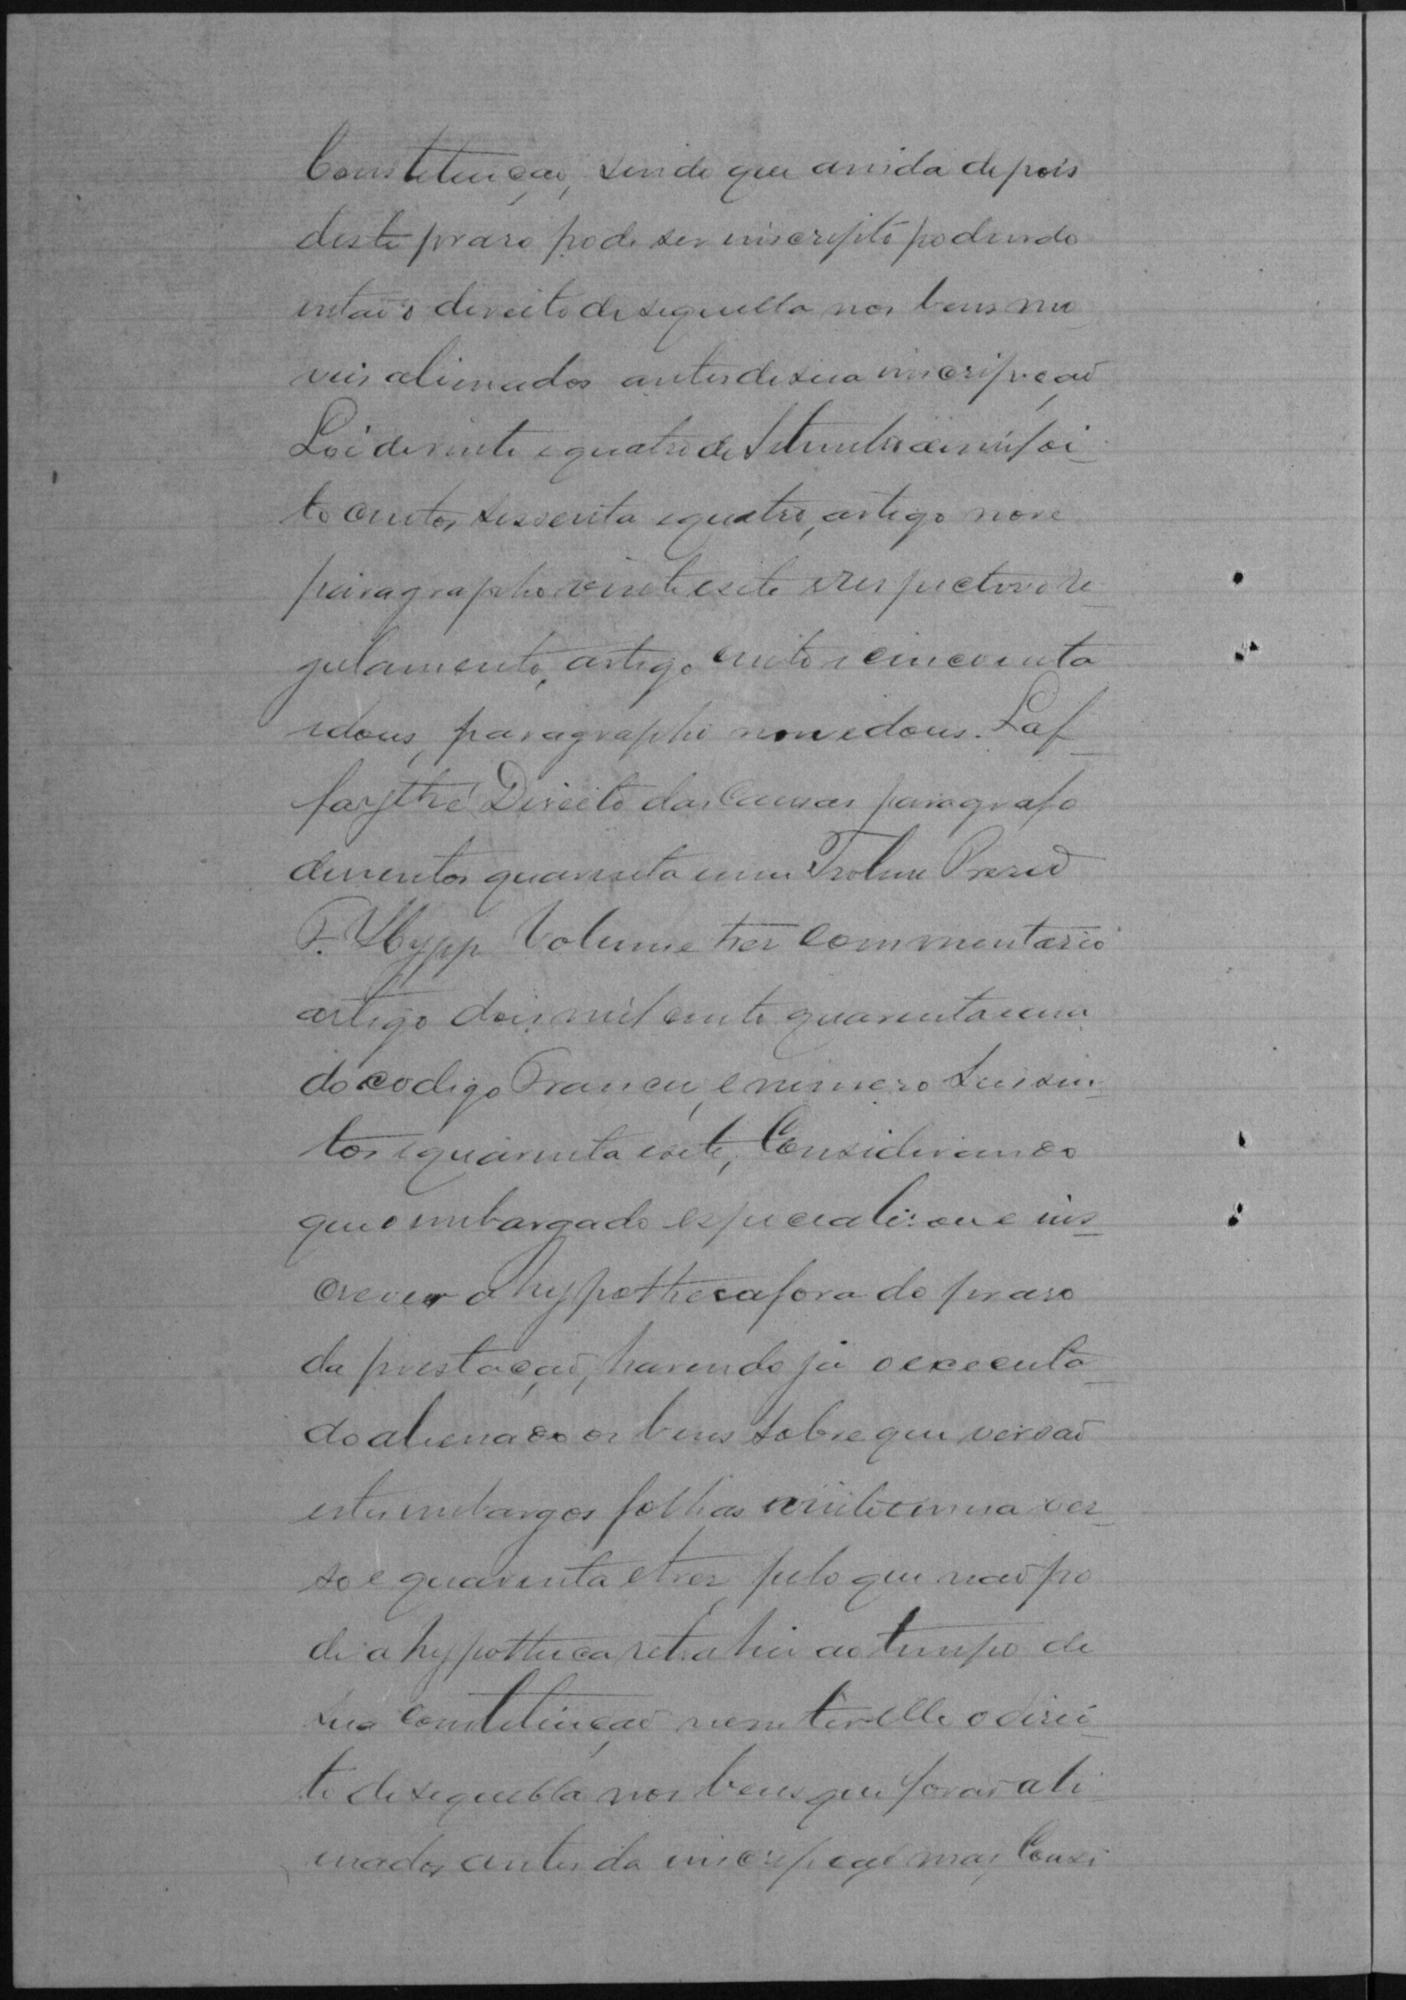 Constituição, sende que ainda depois
deste praso pode ser inscripto podendo
entaõ o direito de sequella nos bens mo
veis alienados antes de sua inscripçaõ
Lei de vinte e quatro de Setembro de mil oi-
to centos sessenta e quatro, artigo nove
paragrapho vinte e sete e respectivo re-
gulamento, artigo cento e cincoenta
e dous, paragrapho nove e dous. Laf-
faythé Direito das Cousas paragrafo
duzentos quarenta e um
P. Hypp Volume tres commentario
artigo dois mil cento quarenta e um
do codigo Francez, e numero seis cen-
tos e quarenta e sete, Considerando
que o embargado especialisou e ins-
creveu a hypotheca fora do praso
da prestaçaõ, havendo já o executa-
do alienado os bens sobre que versaõ
estes embargos folhas vinte e uma ver-
so e quarenta e tres pelo que naõ po
de a hypotheca retrahir ao tempo de
sua constituiçaõ nem ter elle o direi-
to de sequella nos bens que foraõ ali
enados antes da inscripçaõ mas, Consi